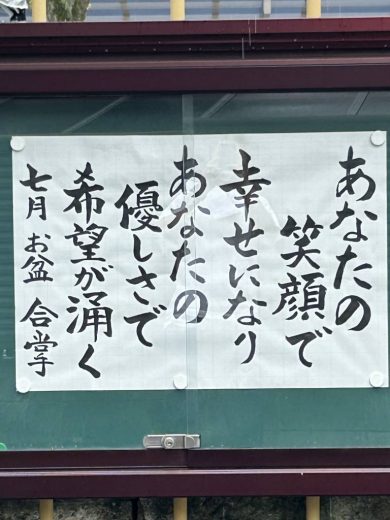 あなたの
笑顔で
幸せになり
あなたの
優しさで
希望が涌く
七月 お盆 合掌